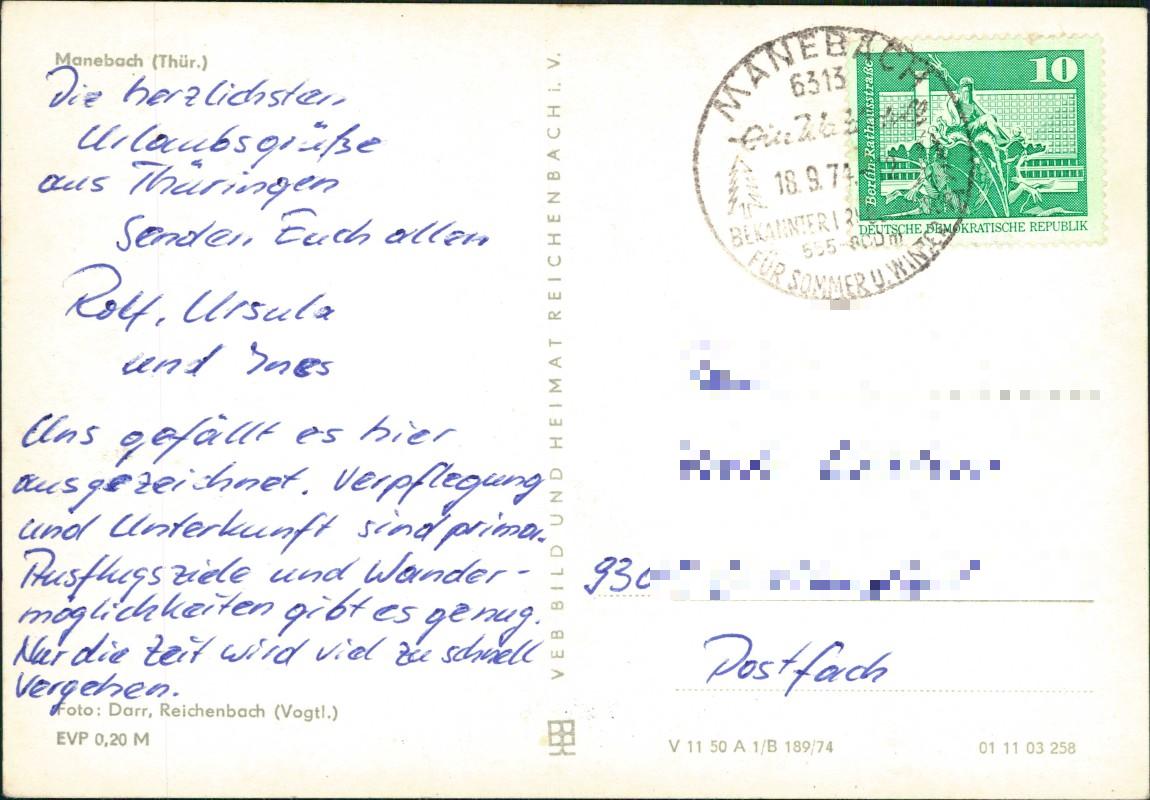 Manebach (Thür.)
Die herzlichsten
Urlaubsgrüße
aus Thüringen
Senden Euch allen
Rolf, Ursula
und Ines
Uns gefällt es hier
ausgezeichnet. Verpflegung
und Unterkunft sind prima.
Ausflugsziele und Wander-
möglichkeiten gibt es genug.
Nur die Zeit wird viel zu schnell
vergehen.
Foto: Darr, Reichenbach (Vogtl.)
EVP 0,20 M
VEB BILD UND HEIMAT REICHENBACH i. V.
MANEBACH
6313
18.9.74
BEKANNTER
555-800m
FÜR SOMMER U. WINTER
10
Berlin-Rathausstraße
DEUTSCHE DEMOKRATISCHE REPUBLIK
930
Postfach
V 11 50 A 1/B 189/74
01 11 03 258